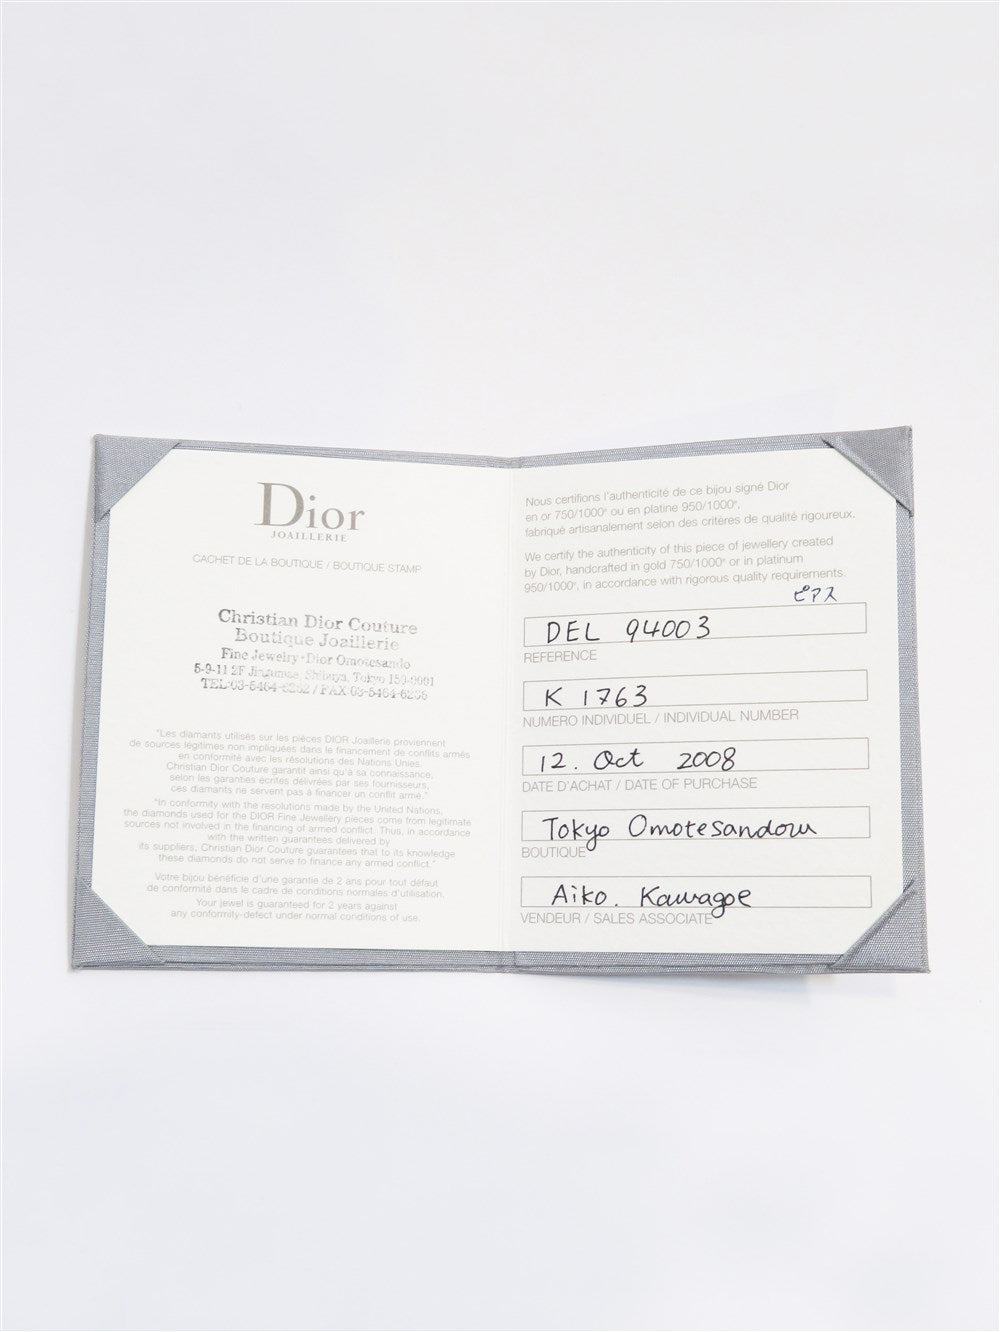 Dior
JOAILLERIE
CACHET DE LA BOUTIQUE / BOUTIQUE STAMP
Christian Dior Couture
Boutique Joaillerie
Fine Jewelry・Dior Omotesando
5-9-11 2F Jingumae, Shibuya, Tokyo 150-0001
TEL:03-5464- / FAX 03-5464-
"Les diamants utilisés sur les pièces DIOR Joaillerie proviennent
de sources légitimes non impliquées dans le financement de conflits armés
en conformité avec les résolutions des Nations Unies.
Christian Dior Couture garantit ainsi qu'à sa connaissance,
selon les garanties écrites délivrées par ses fournisseurs,
ces diamants ne servent pas à financer un conflit armé."
"In conformity with the resolutions made by the United Nations,
the diamonds used for the DIOR Fine Jewellery pieces come from legitimate
sources not involved in the financing of armed conflict. Thus, in accordance
with the written guarantees delivered by
its suppliers, Christian Dior Couture guarantees that to its knowledge
these diamonds do not serve to finance any armed conflict."
Votre bijou bénéficie d'une garantie de 2 ans pour tout défaut
de conformité dans le cadre de conditions normales d'utilisation.
Your jewel is guaranteed for 2 years against
any conformity-defect under normal conditions of use.
Nous certifions l'authenticité de ce bijou signé Dior
en or 750/1000° ou en platine 950/1000°,
fabriqué artisanalement selon des critères de qualité rigoureux.
We certify the authenticity of this piece of jewellery created
by Dior, handcrafted in gold 750/1000° or in platinum
950/1000°, in accordance with rigorous quality requirements.
ピアス
DEL 94003
REFERENCE
K 1763
NUMERO INDIVIDUEL / INDIVIDUAL NUMBER
12. Oct 2008
DATE D'ACHAT / DATE OF PURCHASE
Tokyo Omotesandou
BOUTIQUE
Aiko. Kawagoe
VENDEUR / SALES ASSOCIATE